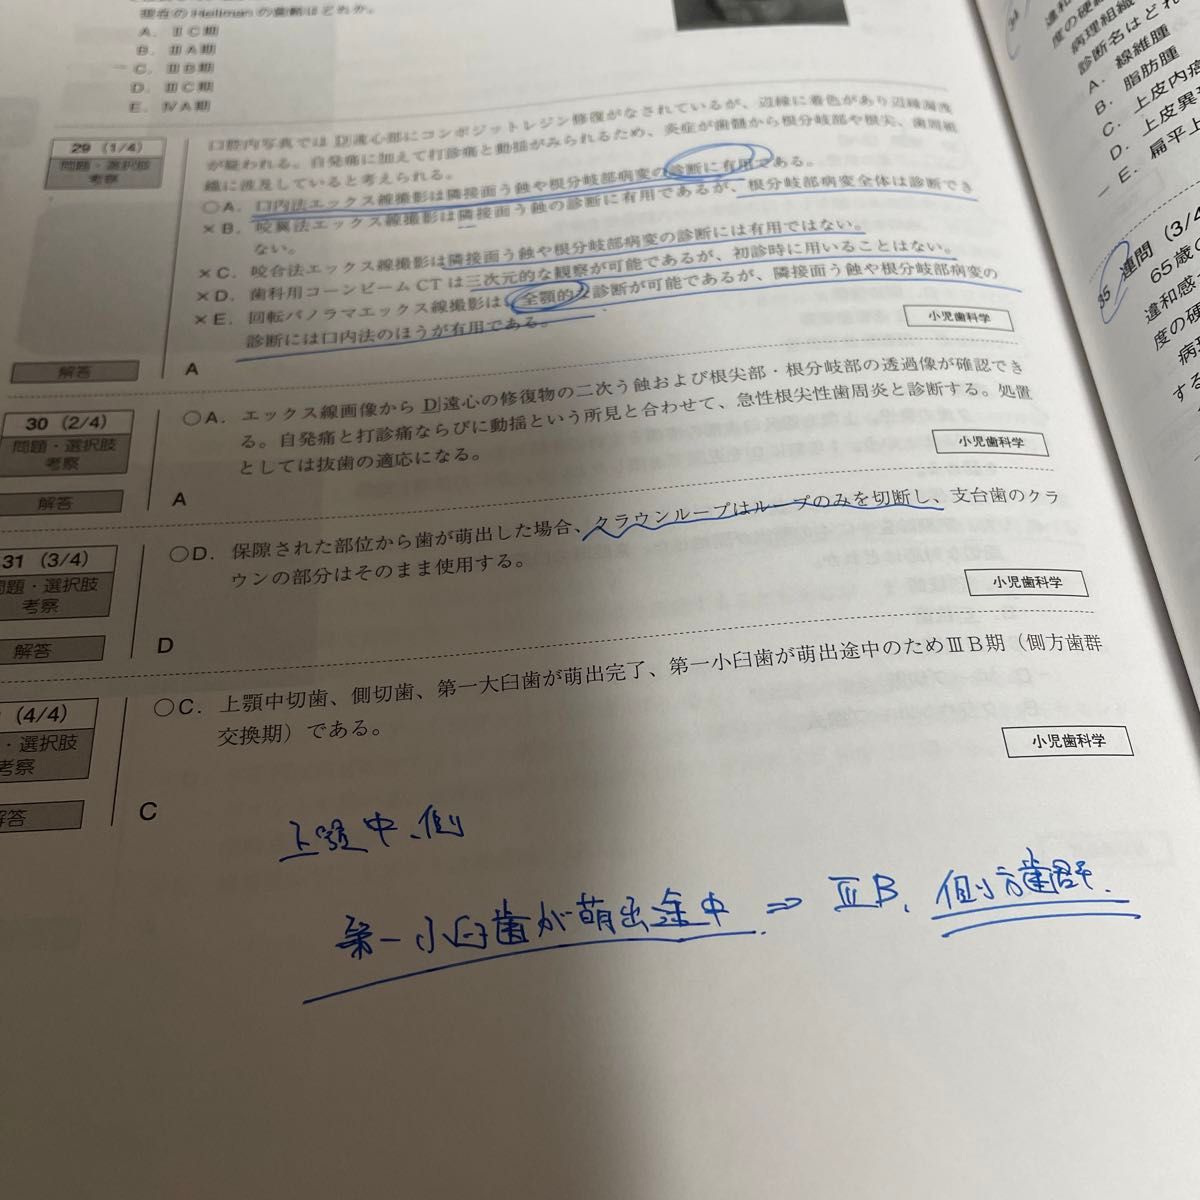 現在のHellmanの歯齢はどれか。
A. ⅡC期
B. ⅢA期
C. ⅢB期
D. ⅢC期
E. ⅣA期
29 (1/4)
問題・選択肢
考察
口腔内写真では D 遠心部にコンポジットレジン修復がなされているが、辺縁に着色があり辺縁漏洩
が疑われる。自発痛に加えて打診痛と動揺がみられるため、炎症が歯髄から根分岐部や根尖、歯周組
織に波及していると考えられる。
○A. 口内法エックス線撮影は隣接面う蝕や根分岐部病変の診断に有用である。
×B. 咬翼法エックス線撮影は隣接面う蝕の診断に有用であるが、根分岐部病変全体は診断でき
ない。
×C. 咬合法エックス線撮影は隣接面う蝕や根分岐部病変の診断には有用ではない。
×D. 歯科用コーンビームCTは三次元的な観察が可能であるが、初診時に用いることはない。
×E. 回転パノラマエックス線撮影は、全顎的な診断が可能であるが、隣接面う蝕や根分岐部病変の
診断には口内法のほうが有用である。
小児歯科学
解答
A
30 (2/4)
問題・選択肢
考察
○A. エックス線画像から D 遠心の修復物の二次う蝕および根尖部・根分岐部の透過像が確認でき
る。自発痛と打診痛ならびに動揺という所見と合わせて、急性根尖性歯周炎と診断する。処置
としては抜歯の適応になる。
小児歯科学
解答
A
31 (3/4)
問題・選択肢
考察
○D. 保隙された部位から歯が萌出した場合、クラウンループはループのみを切断し、支台歯のクラ
ウンの部分はそのまま使用する。
小児歯科学
解答
D
(4/4)
・選択肢
考察
○C. 上顎中切歯、側切歯、第一大臼歯が萌出完了、第一小臼歯が萌出途中のためⅢB期（側方歯群
交換期）である。
小児歯科学
解答
C
上顎中、側
第一小臼歯が萌出途中 ⇒ ⅢB、側方歯群.
度の硬
病理組織
診断名はどれ
A. 線維腫
B. 脂肪腫
C. 上皮内癌
D. 上皮異
E. 扁平上
35
連問 (3/4
65歳の
違和感
度の硬
病理
する